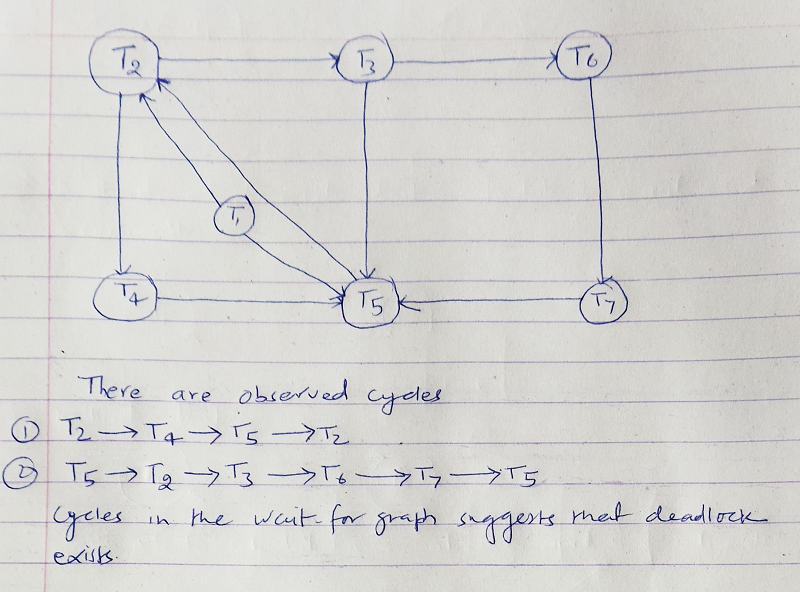 T2
T3
T6
T1
T4
T5
T7
There are observed cycles
① T2 → T4 → T5 → T2
② T5 → T2 → T3 → T6 → T7 → T5
Cycles in the wait-for graph suggests that deadlock
exists.